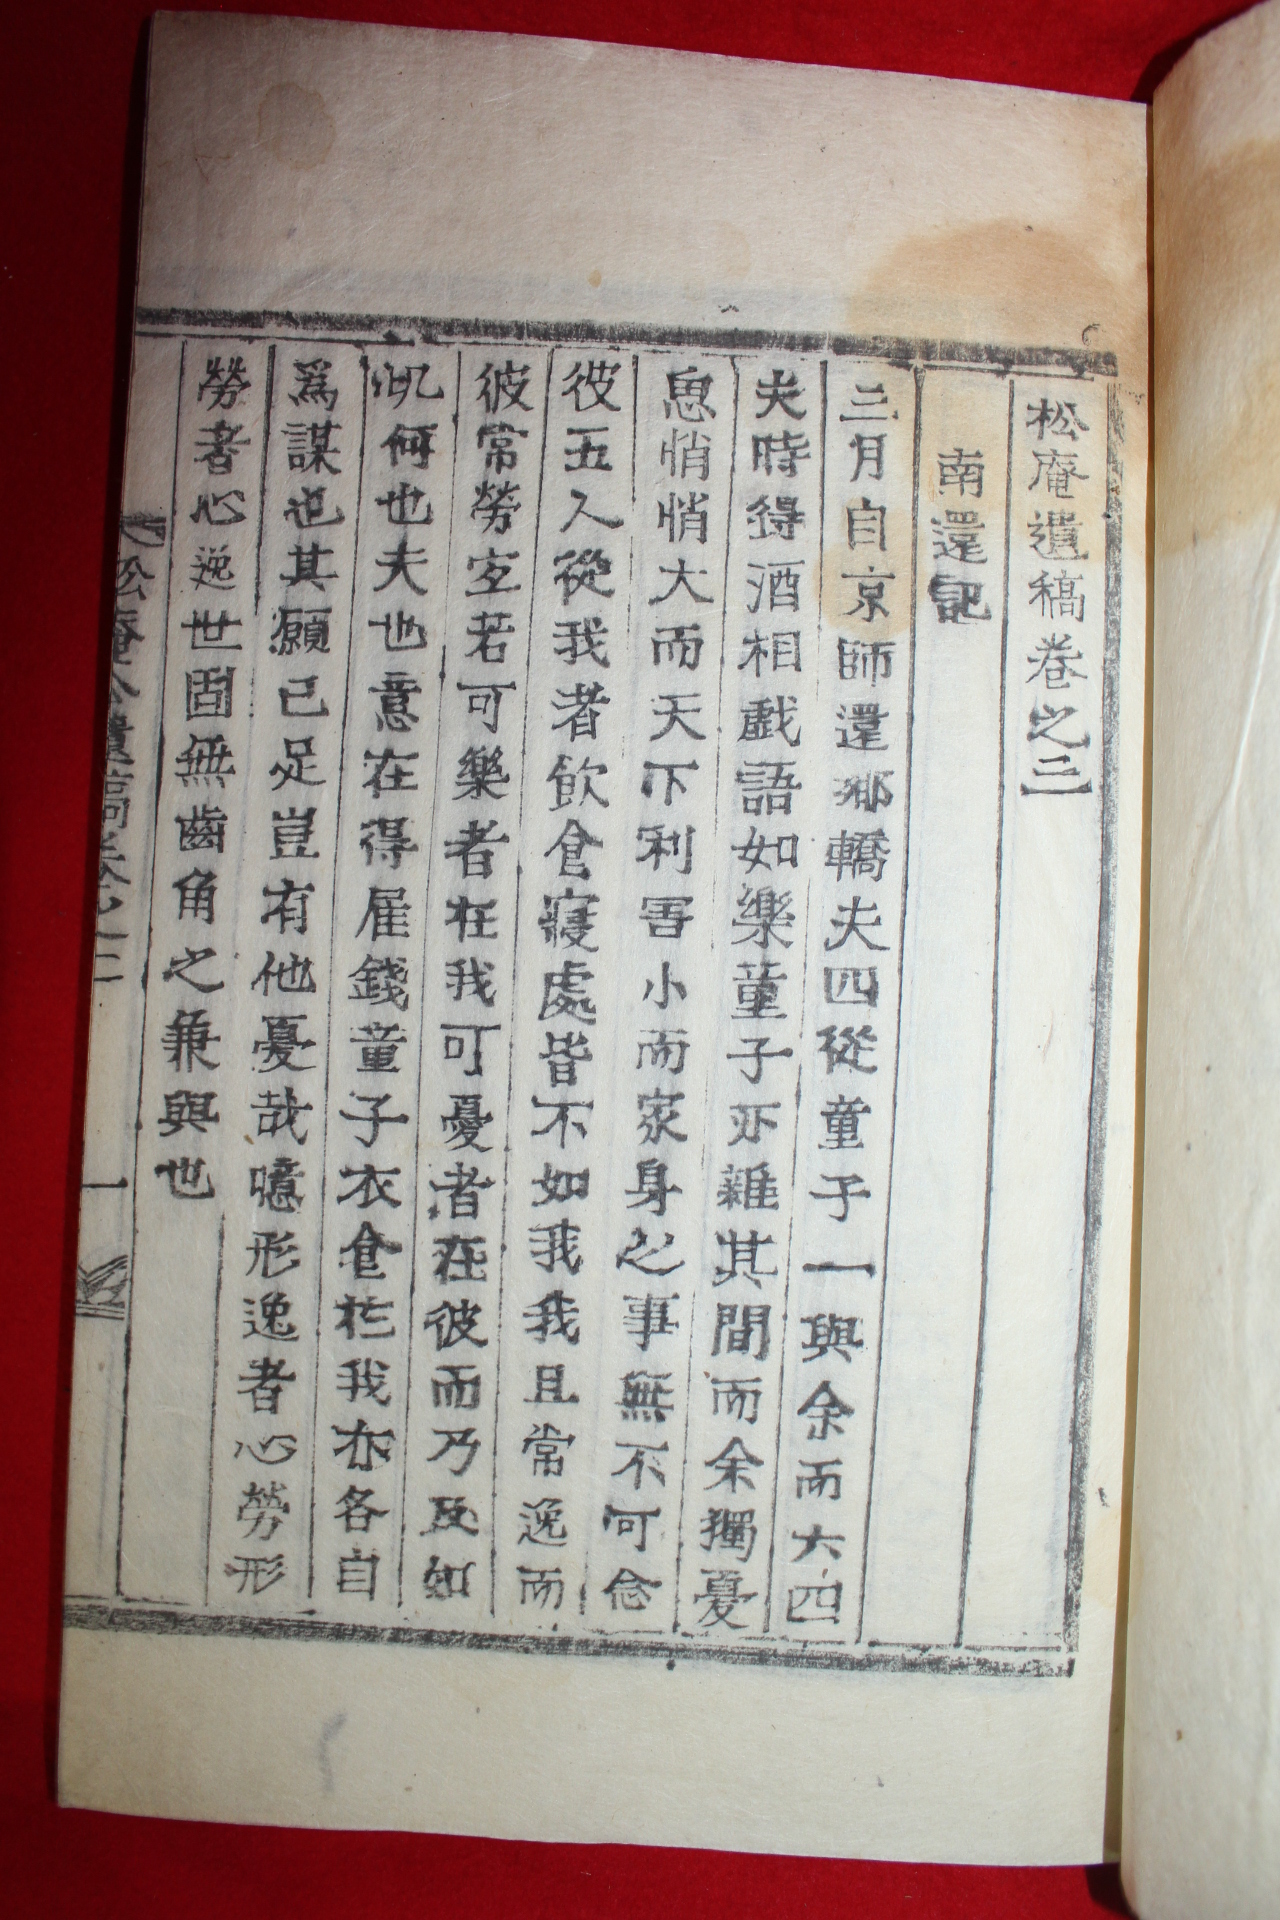 松庵遺稿卷之三
南還記
三月自京師還鄕轎夫四從童子一與余而六四
夫時得酒相戱語如樂童子亦雜其間而余獨憂
思悄悄大而天下利害小而家身之事無不可念
彼五人從我者飮食寢處皆不如我我且常逸而
彼常勞宜若可樂者在我可憂者在彼而乃反如
此何也夫也意在得雇錢童子衣食於我亦各自
爲謀也其願已足豈有他憂哉噫形逸者心勞形
勞者心逸世固無齒角之兼與也
松庵公遺稿卷之三 一